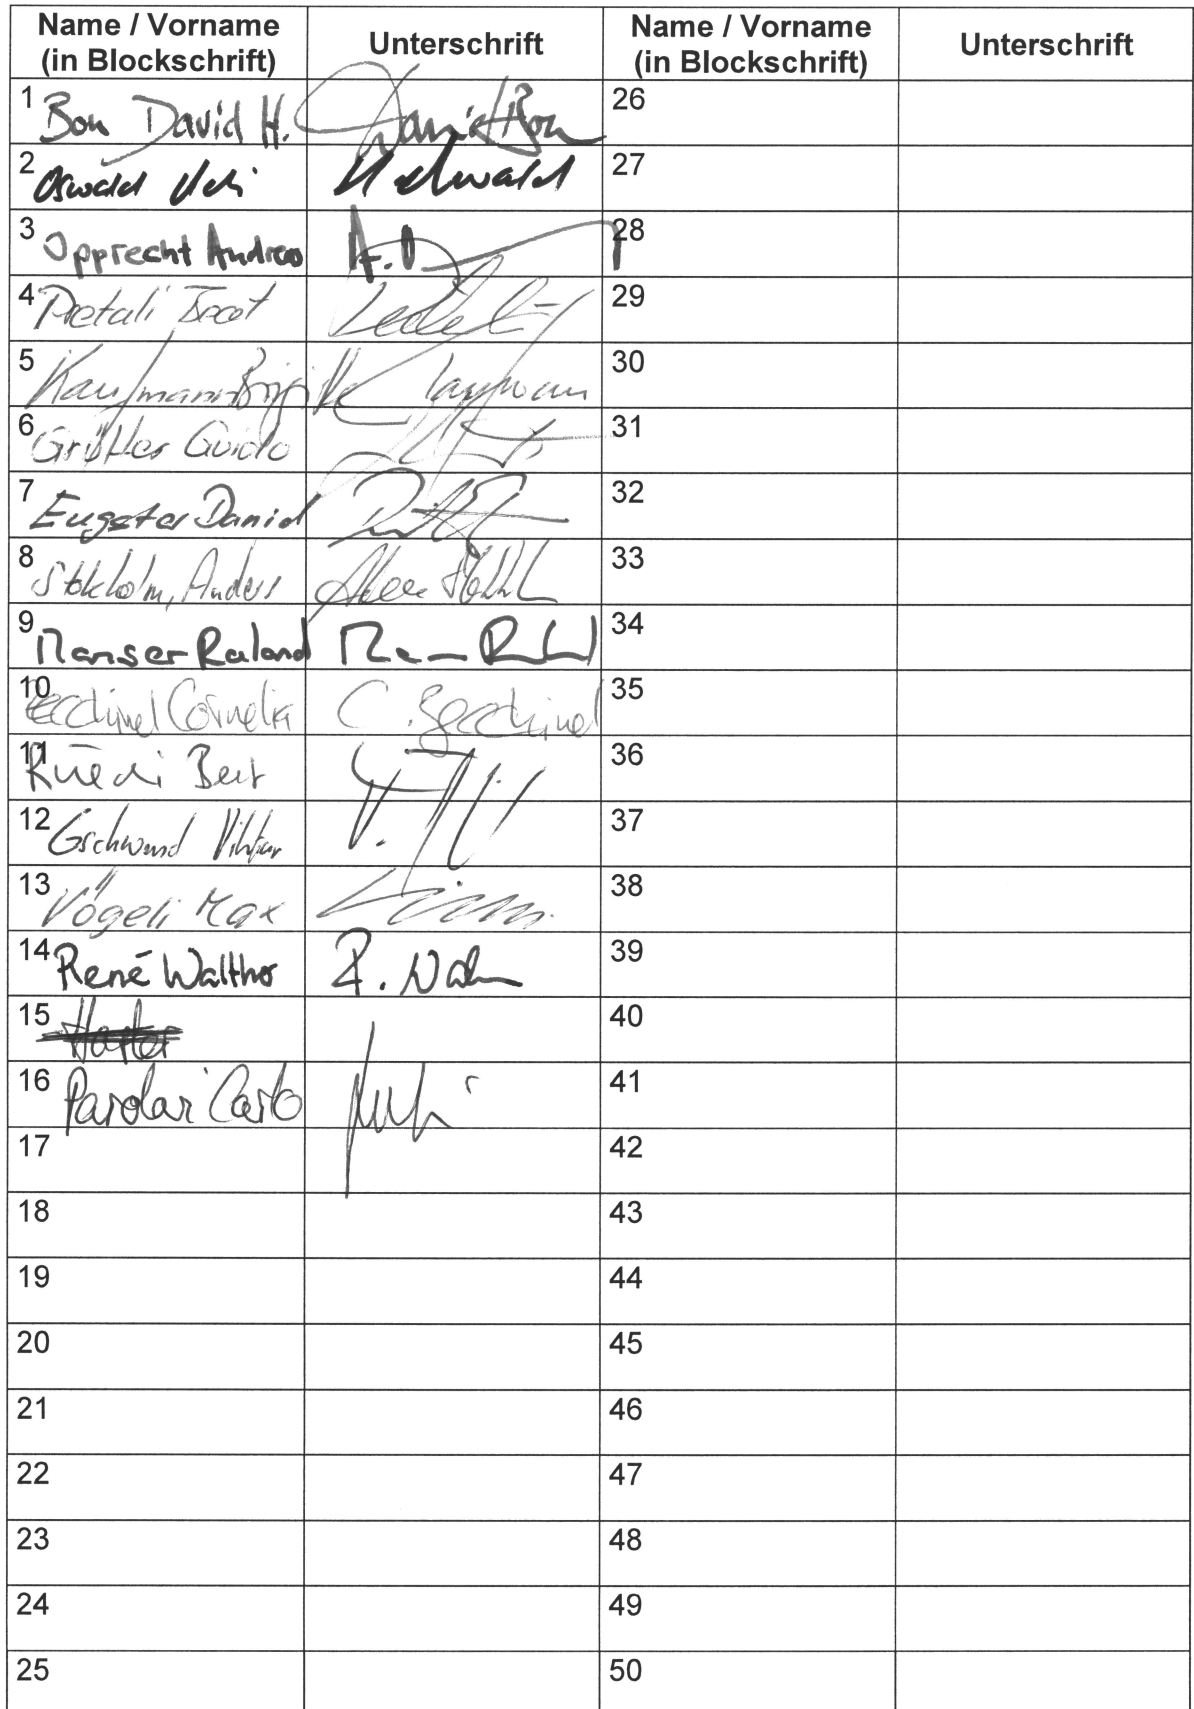 Name / Vorname
(in Blockschrift)
Unterschrift
Name / Vorname
(in Blockschrift)
Unterschrift
1 Bon David H. David Bon 26
2 Oswald Ueli 27
3 Opprecht Andrea A.O 28
4 Pretali Beat 29
5 Kaufmann Brigitte Kaufmann 30
6 Grütter Guido 31
7 Eugster Daniel 32
8 Stokholm, Anders 33
9 Manser Roland 34
10 Zecchinel Cornelia C. Zecchinel 35
11 Rüedi Bert 36
12 Gschwend Viktor 37
13 Vögeli Max 38
14 René Walther R. 39
15 Hafter 40
16 Parolari Carlo 41
17 42
18 43
19 44
20 45
21 46
22 47
23 48
24 49
25 50